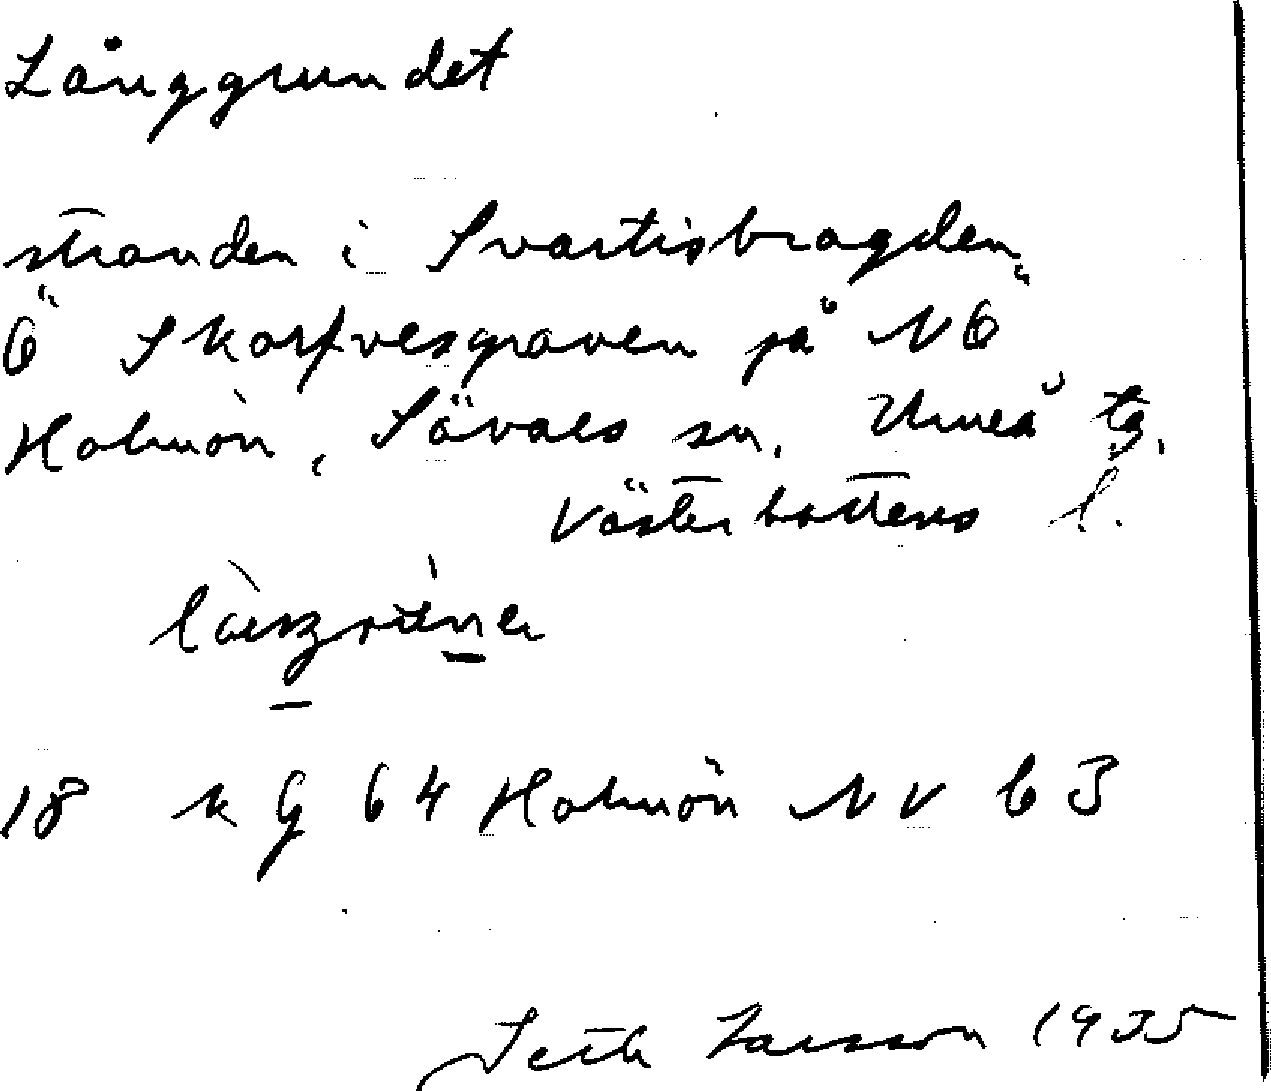 Långgrundet
stranden i Svartisbragden
Ö Skarfvesgraven på NÖ
Holmön, Sävars sn, Umeå tg,
Västerbottens l.
18 k G 64 Holmön NV 63
Seth Larsson 1935